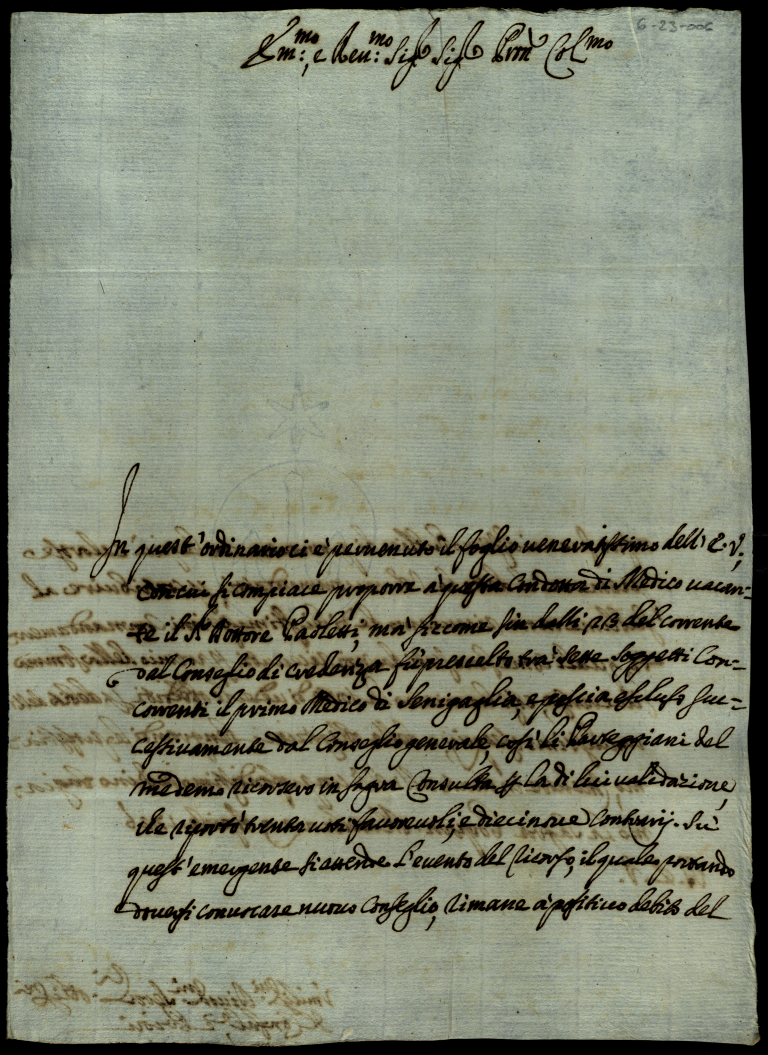 6-23-006
Em:mo, e Reu:mo Sig.r Sig.r Pron Colmo
In quest'ordinario ci è peruenuto il foglio ueneratissimo dell'E.V.,
con cui si compiace proporre à questa Condotta di Medico uacan-
te il Sr Dottore Paoletti, mà siccome sin dalli 23 del corrente
dal Conseglio di credenza fù prescelto trà sette soggetti Con-
correnti il primo Medico di Senigaglia, e poscia escluso suc-
cessiuamente dal Conseglio generale, così li Parteggiani del
medemo ricorsero in sagra Consulta la di lui ualidazione,
che riportò trenta uoti fauoreuoli, e diecinoue Contrarij. Sù
quest'emergente si attende l'euento del ricorso, il quale portando
douersi conuocare nuouo Conseglio, rimane à positiuo debito del